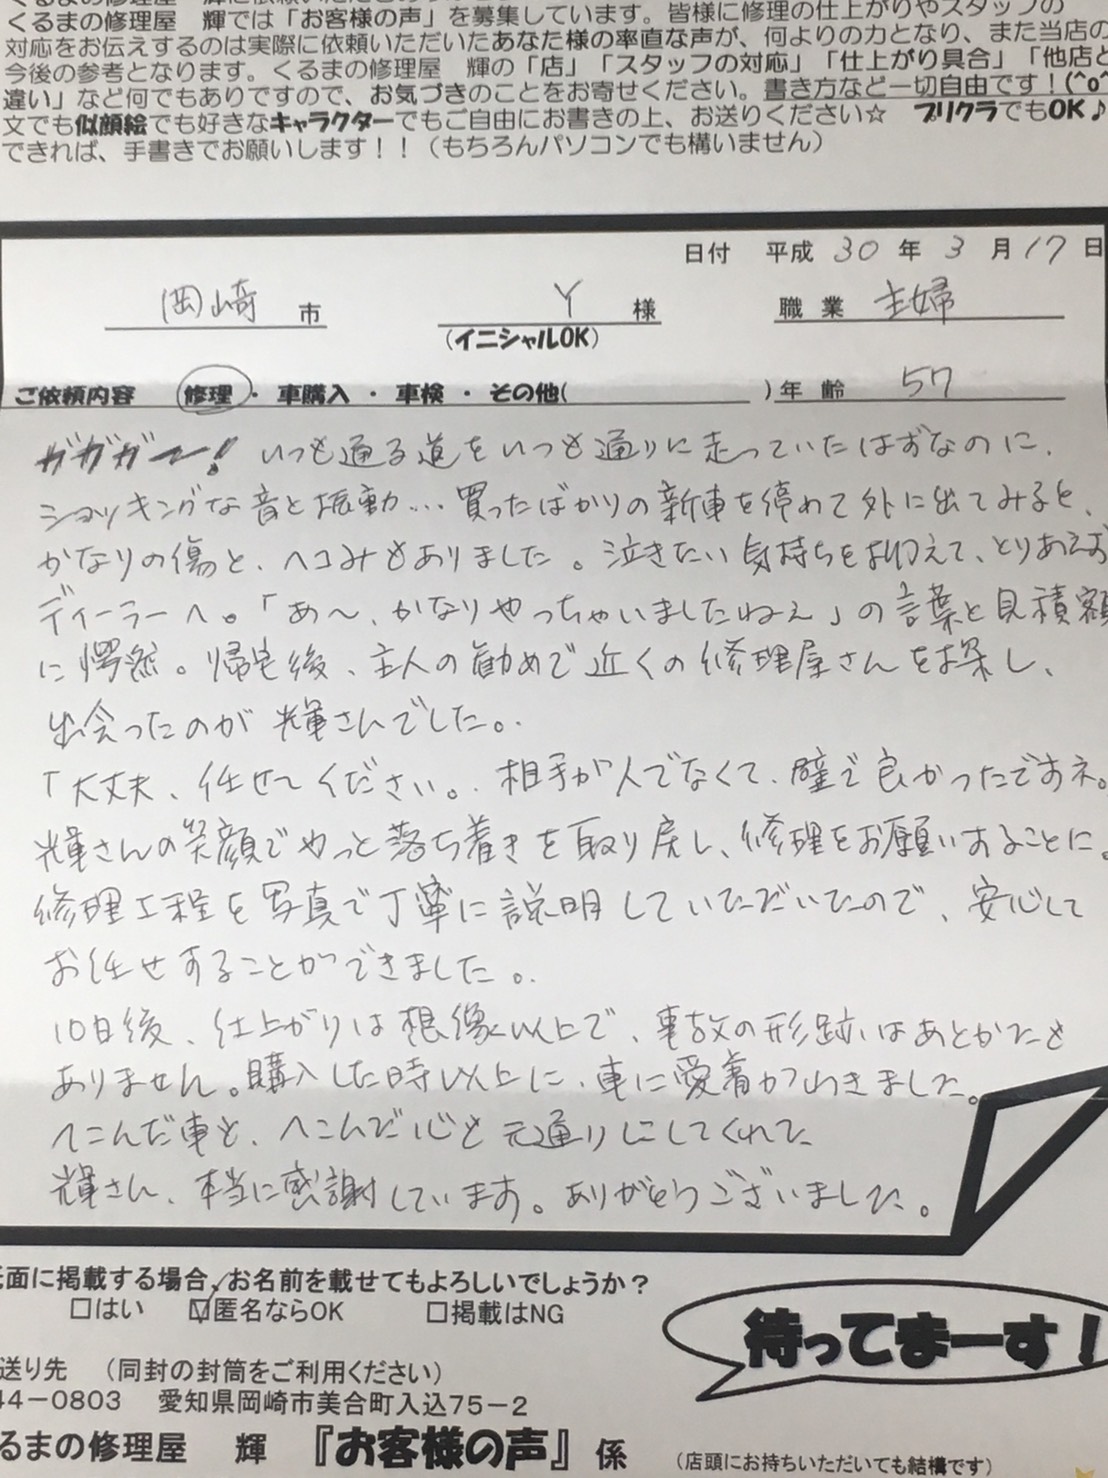 くるまの修理屋 輝では「お客様の声」を募集しています。皆様に修理の仕上がりやスタッフの
対応をお伝えするのは実際に依頼いただいたあなた様の率直な声が、何よりの力となり、また当店の
今後の参考となります。くるまの修理屋 輝の「店」「スタッフの対応」「仕上がり具合」「他店と
違い」など何でもありですので、お気づきのことをお寄せください。書き方など一切自由です！(^o^
文でも似顔絵でも好きなキャラクターでもご自由にお書きの上、お送りください☆ プリクラでもOK♪
できれば、手書きでお願いします！！（もちろんパソコンでも構いません）
日付 平成 30 年 3 月 17 日
岡崎 市 Y 様 職業 主婦
(イニシャルOK)
ご依頼内容 修理・車購入・車検・その他( )年齢 57
ガガガー! いつも通る道をいつも通りに走っていたはずなのに、
ショッキングな音と振動…買ったばかりの新車を停めて外に出てみると、
かなりの傷と、ヘコみもありました。泣きたい気持ちを抑えて、とりあえず
ディーラーへ。「あ〜、かなりやっちゃいましたねぇ」の言葉と見積額
に愕然。帰宅後、主人の勧めで近くの修理屋さんを探し、
出会ったのが輝さんでした。
「大丈夫、任せてください。相手が人でなくて、壁で良かったですネ。
輝さんの笑顔でやっと落ち着きを取り戻し、修理をお願いすることに。
修理工程を写真で丁寧に説明していただいたので、安心して
お任せすることができました。
10日後、仕上がりは想像以上で、事故の形跡はあとかたも
ありません。購入した時以上に、車に愛着がわきました。
へこんだ車と、へこんだ心も元通りにしてくれた
輝さん、本当に感謝しています。ありがとうございました。
紙面に掲載する場合、お名前を載せてもよろしいでしょうか？
□はい ☑匿名ならOK □掲載はNG
待ってまーす！
送り先 （同封の封筒をご利用ください）
44－0803 愛知県岡崎市美合町入込75－2
るまの修理屋 輝 『お客様の声』係 （店頭にお持ちいただいても結構です）